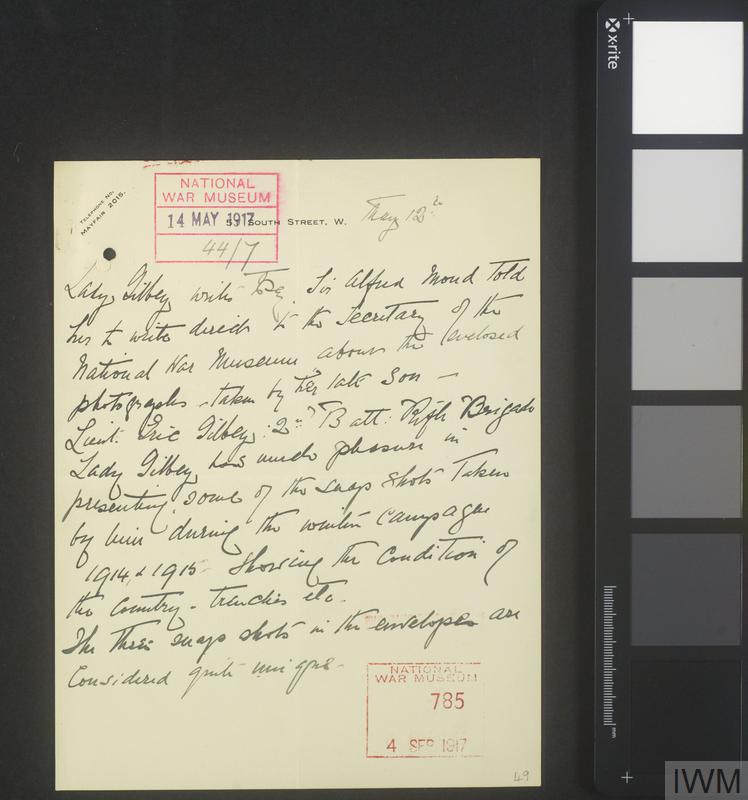 TELEPHONE NO.
MAYFAIR 2015.
NATIONAL
WAR MUSEUM
14 MAY 1917
44/7
SOUTH STREET, W.
May 12th
Lady Gilbey writes to say Sir Alfred Mond told
her to write direct to the Secretary of the
National War Museum about the enclosed
photographs - taken by her late Son -
Lieut. Eric Gilbey: 2nd Batt: Rifle Brigade
Lady Gilbey has much pleasure in
presenting some of the snap shots taken
by him during the winter Campagne
1914 & 1915 - Showing the Condition of
the Country - trenches etc -
The three snap shots in the envelopes are
Considered quite unique -
NATIONAL
WAR MUSEUM
785
4 SEP 1917
49
x-rite
mm
IWM